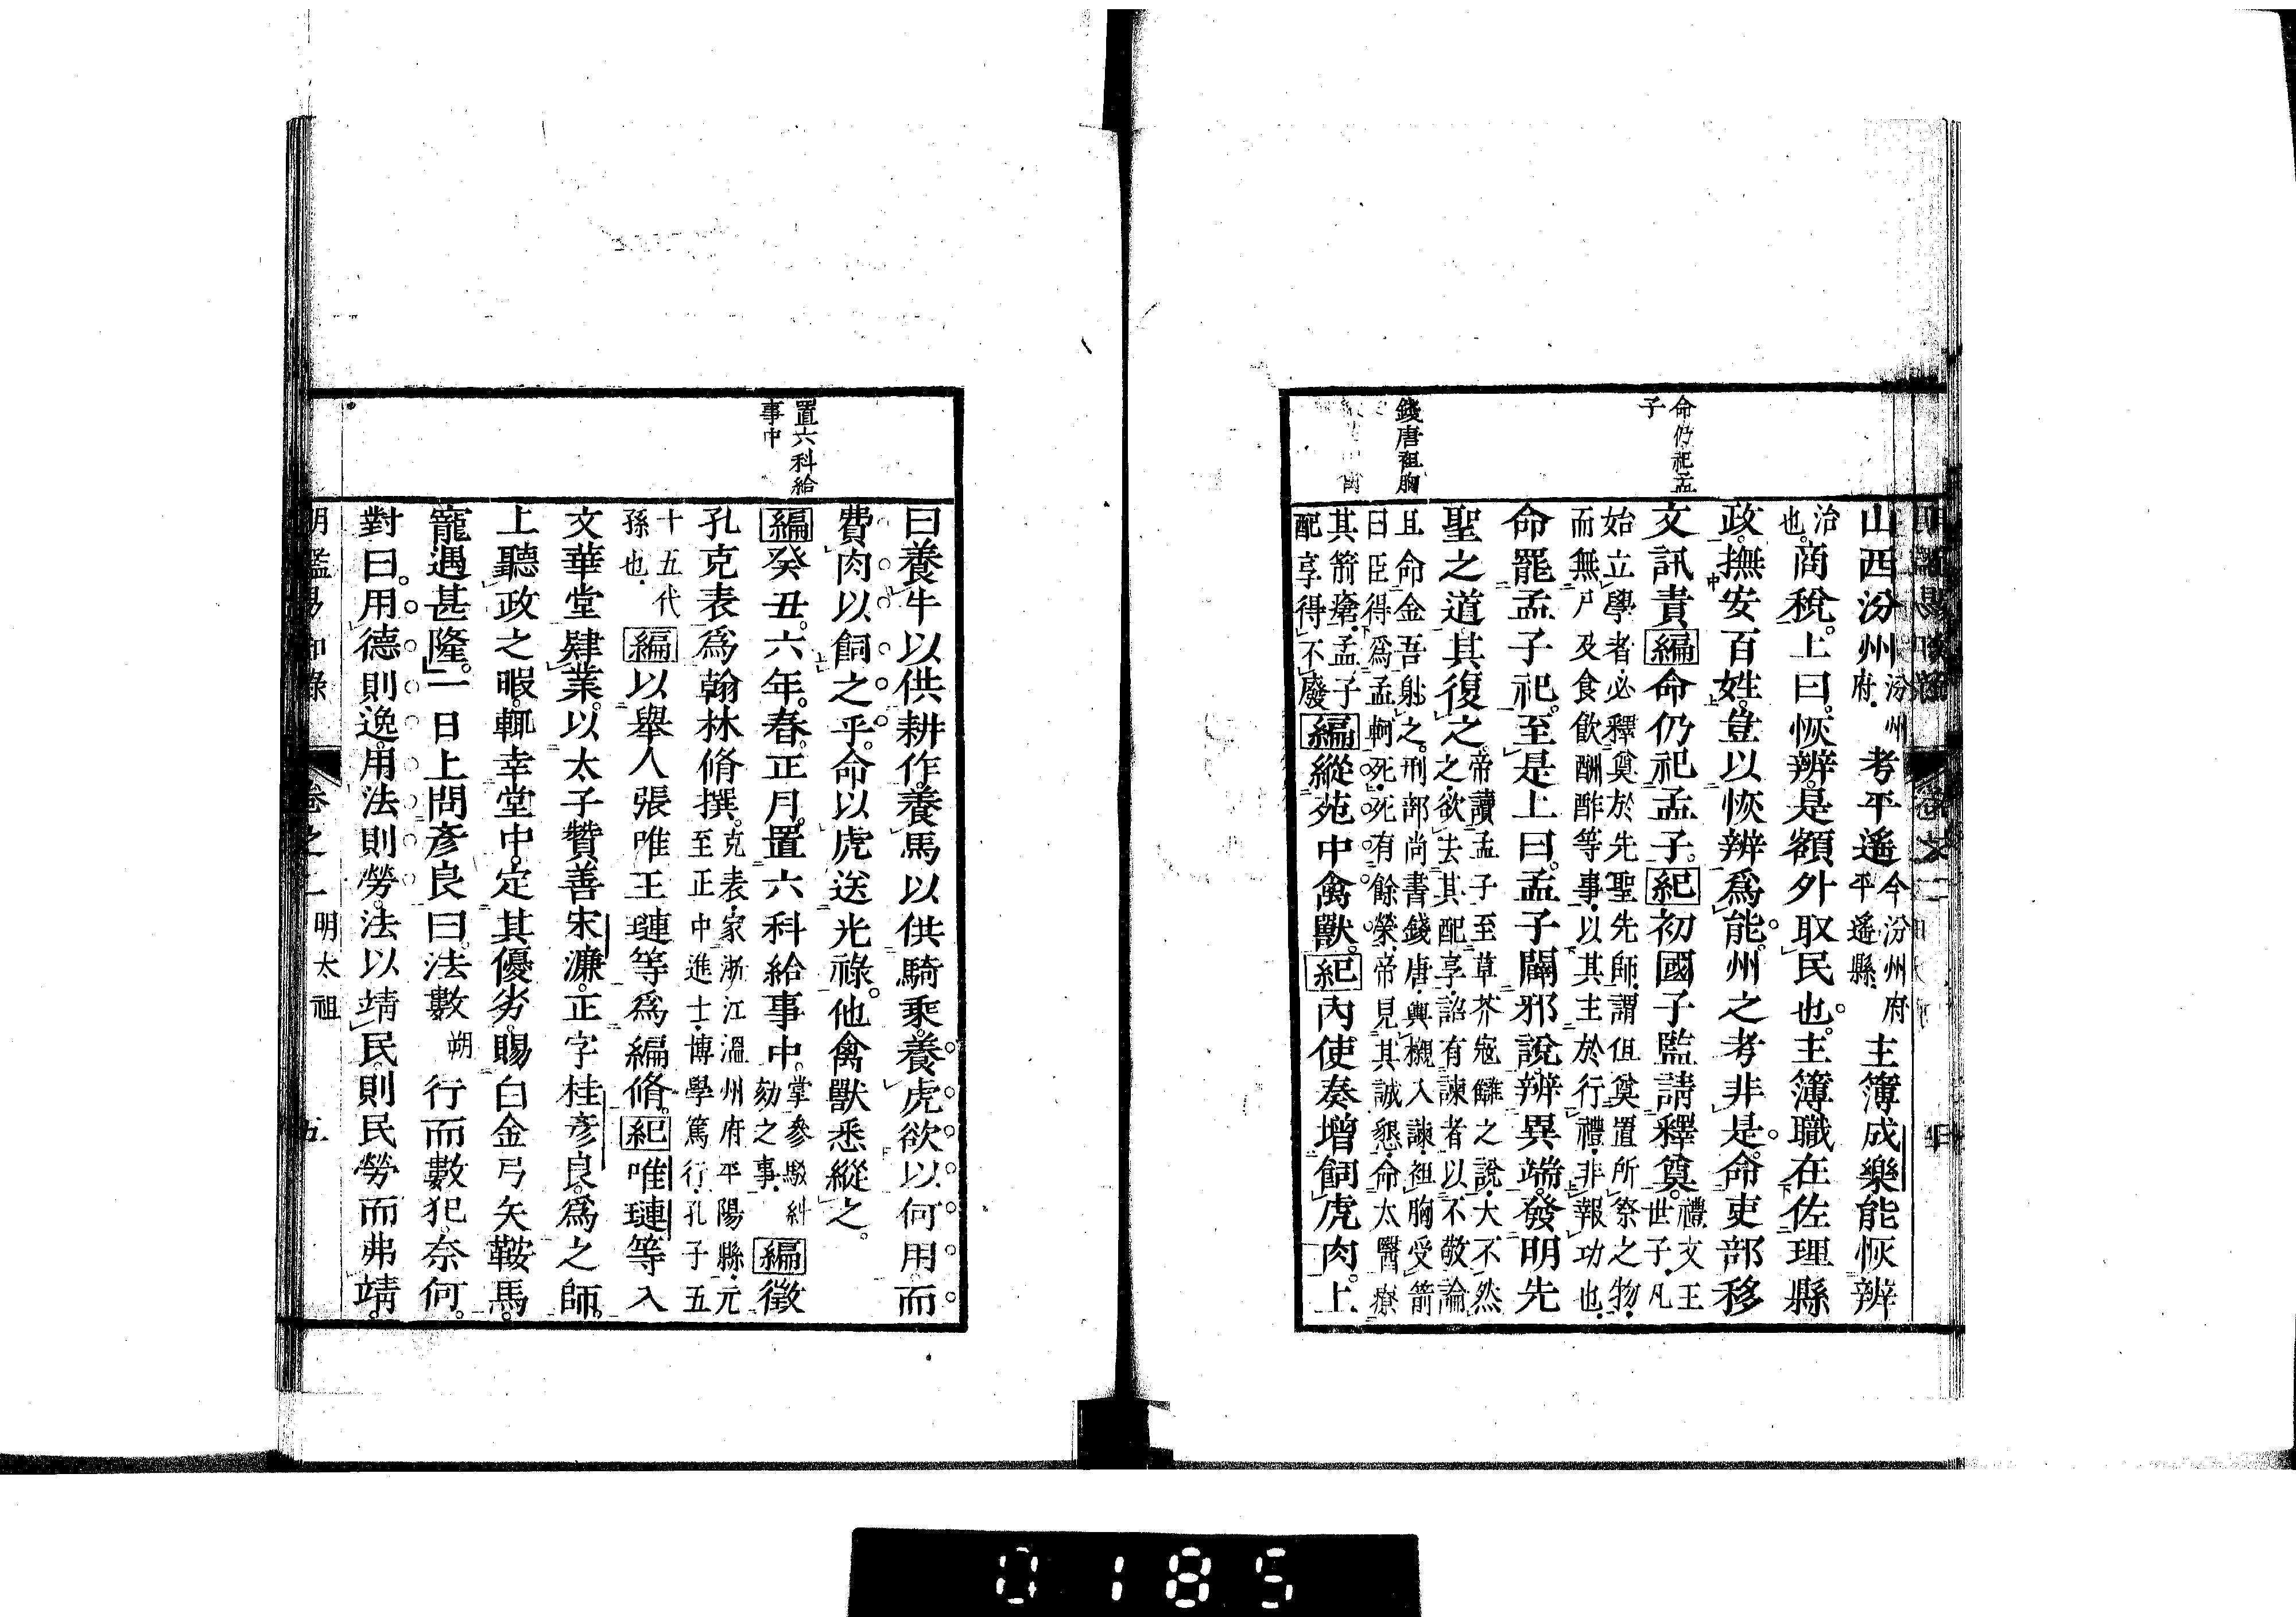 命仍祀孟
子
錢唐袒胸
山西汾州汾州府考平遙今汾州府平遙縣主簿成樂能恢辨
治也商稅。上曰。恢辨。是額外取民也。主簿職在佐理縣
政。撫安百姓。豈以恢辨爲能。州之考非是。命吏部移
文訊責編命仍祀孟子。紀初國子監請釋奠。禮文王世子凡
始立學者必釋奠於先聖先師謂但奠置所祭之物
而無尸及食飲酬酢等事以其主於行禮非報功也
命罷孟子祀。至是上曰。孟子闢邪說。辨異端。發明先
聖之道。其復之。帝讀孟子至草芥寇讎之說大不然之欲去其配享詔有諫者以不敬論
且命金吾射之刑部尚書錢唐輿櫬入諫袒胸受箭
曰臣得爲孟軻死死有餘榮帝見其誠懇命太醫療
其箭瘡孟子
配享得不廢編縱苑中禽獸。紀內使奏增飼虎肉。上
置六科給
事中
曰養牛以供耕作。養馬以供騎乘。養虎欲以何用。而
費肉以飼之乎。命以虎送光祿。他禽獸悉縱之。
編癸丑。六年。春。正月。置六科給事中。掌參駁糾劾之事編徵
孔克表爲翰林脩撰。克表家浙江溫州府平陽縣元至正中進士博學篤行孔子五
十五代
孫也編以舉人張唯王璉等爲編脩。紀唯璉等入
文華堂肄業。以太子贊善宋濂。正字桂彥良。爲之師。
上聽政之暇。輒幸堂中。定其優劣。賜白金弓矢鞍馬。
寵遇甚隆。一日上問彥良曰。法數朔行而數犯。奈何。
對曰。用德則逸。用法則勞。法以靖民。則民勞而弗靖。
明鑑易知錄 卷之一 明太祖 五